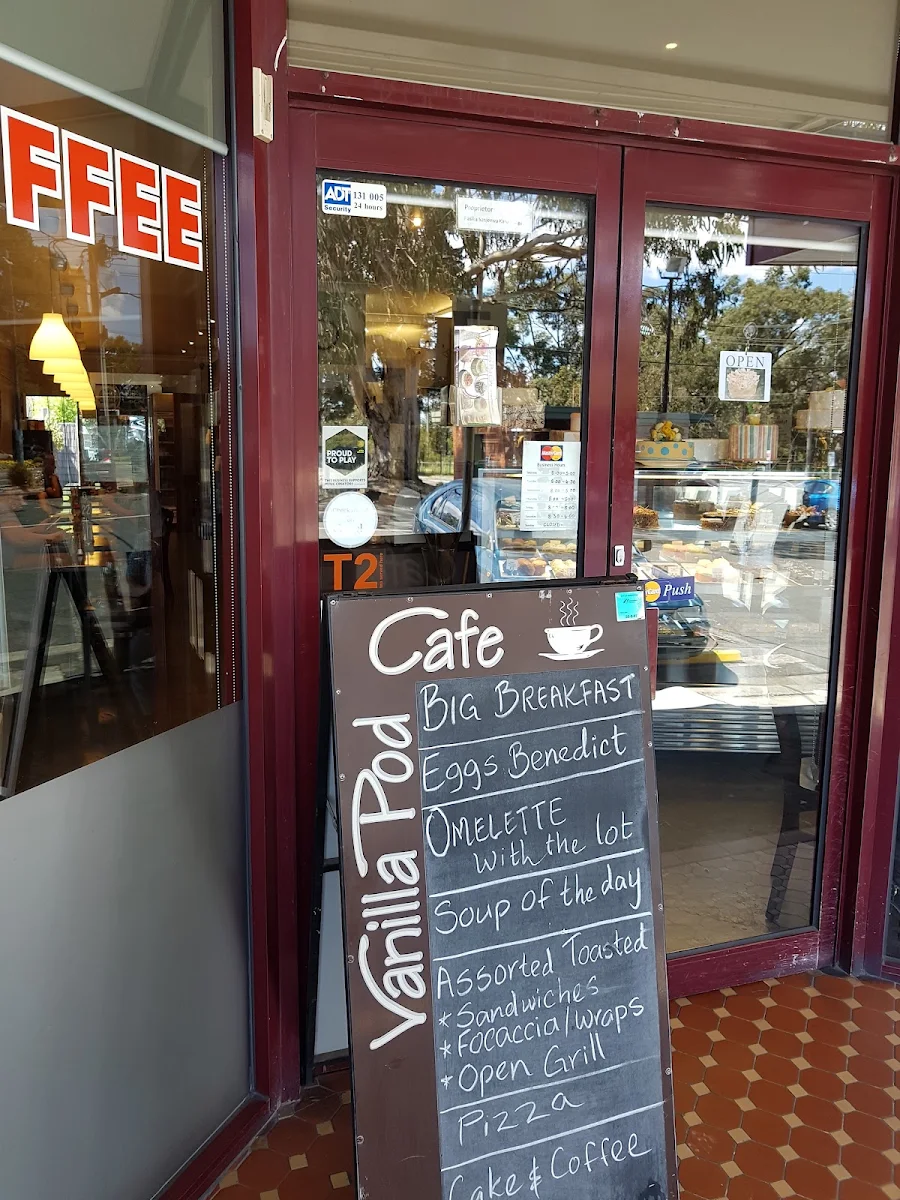 FFEE
ADT
Security
131 005
24 hours
Proprietor
PROUD
TO PLAY
MasterCard
Business Hours
CLOSED
OPEN
T2
Push
Cafe
Vanilla Pod
BIG BREAKFAST
Eggs Benedict
OMELETTE
with the lot
Soup of the day
Assorted Toasted
* Sandwiches
* Focaccia/wraps
* Open Grill
Pizza
Cake & Coffee